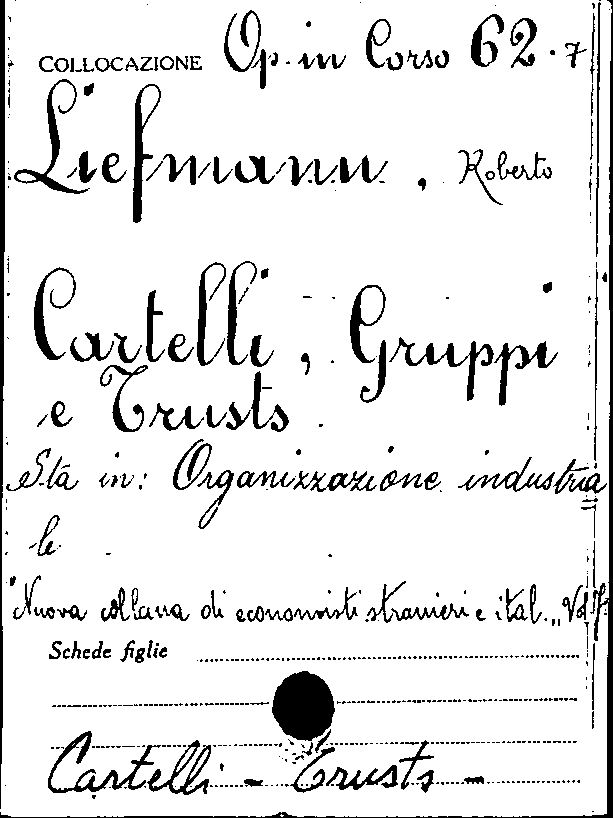 COLLOCAZIONE Op. in Corso 62.7
Liefmann, Roberto
Cartelli, Gruppi
e Trusts.
Sta in: Organizzazione industria
le
"Nuova collana di economisti stranieri e ital.„ Vol 7.
Schede figlie
Cartelli - Trusts -